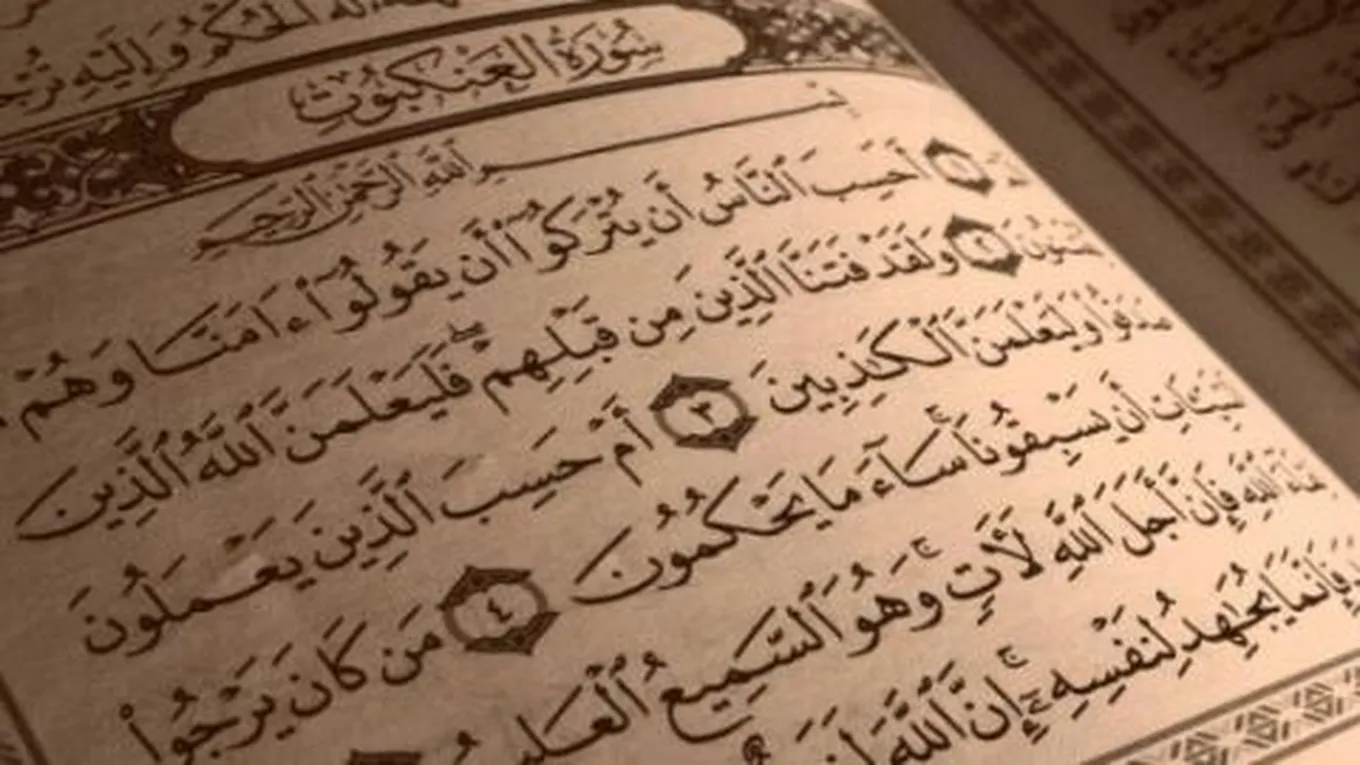 ٱلْحُكْمُ وَإِلَيْهِ
سُورَةُ العَنكَبُوتِ
بِسْمِ ٱللَّهِ ٱلرَّحْمَٰنِ ٱلرَّحِيمِ
١ أَحَسِبَ ٱلنَّاسُ أَن يُتْرَكُوٓا۟ أَن يَقُولُوٓا۟ ءَامَنَّا وَهُمْ
٢ وَلَقَدْ فَتَنَّا ٱلَّذِينَ مِن قَبْلِهِمْ ۖ فَلَيَعْلَمَنَّ ٱللَّهُ ٱلَّذِينَ
وَلَيَعْلَمَنَّ ٱلْكَٰذِبِينَ ٣ أَمْ حَسِبَ ٱلَّذِينَ يَعْمَلُونَ
أَن يَسْبِقُونَا ۚ سَآءَ مَا يَحْكُمُونَ ٤ مَن كَانَ يَرْجُوا۟
ٱللَّهِ فَإِنَّ أَجَلَ ٱللَّهِ لَءَاتٍ ۚ وَهُوَ ٱلسَّمِيعُ ٱلْعَلِيمُ
فَإِنَّمَا يُجَٰهِدُ لِنَفْسِهِۦٓ ۚ إِنَّ ٱللَّهَ